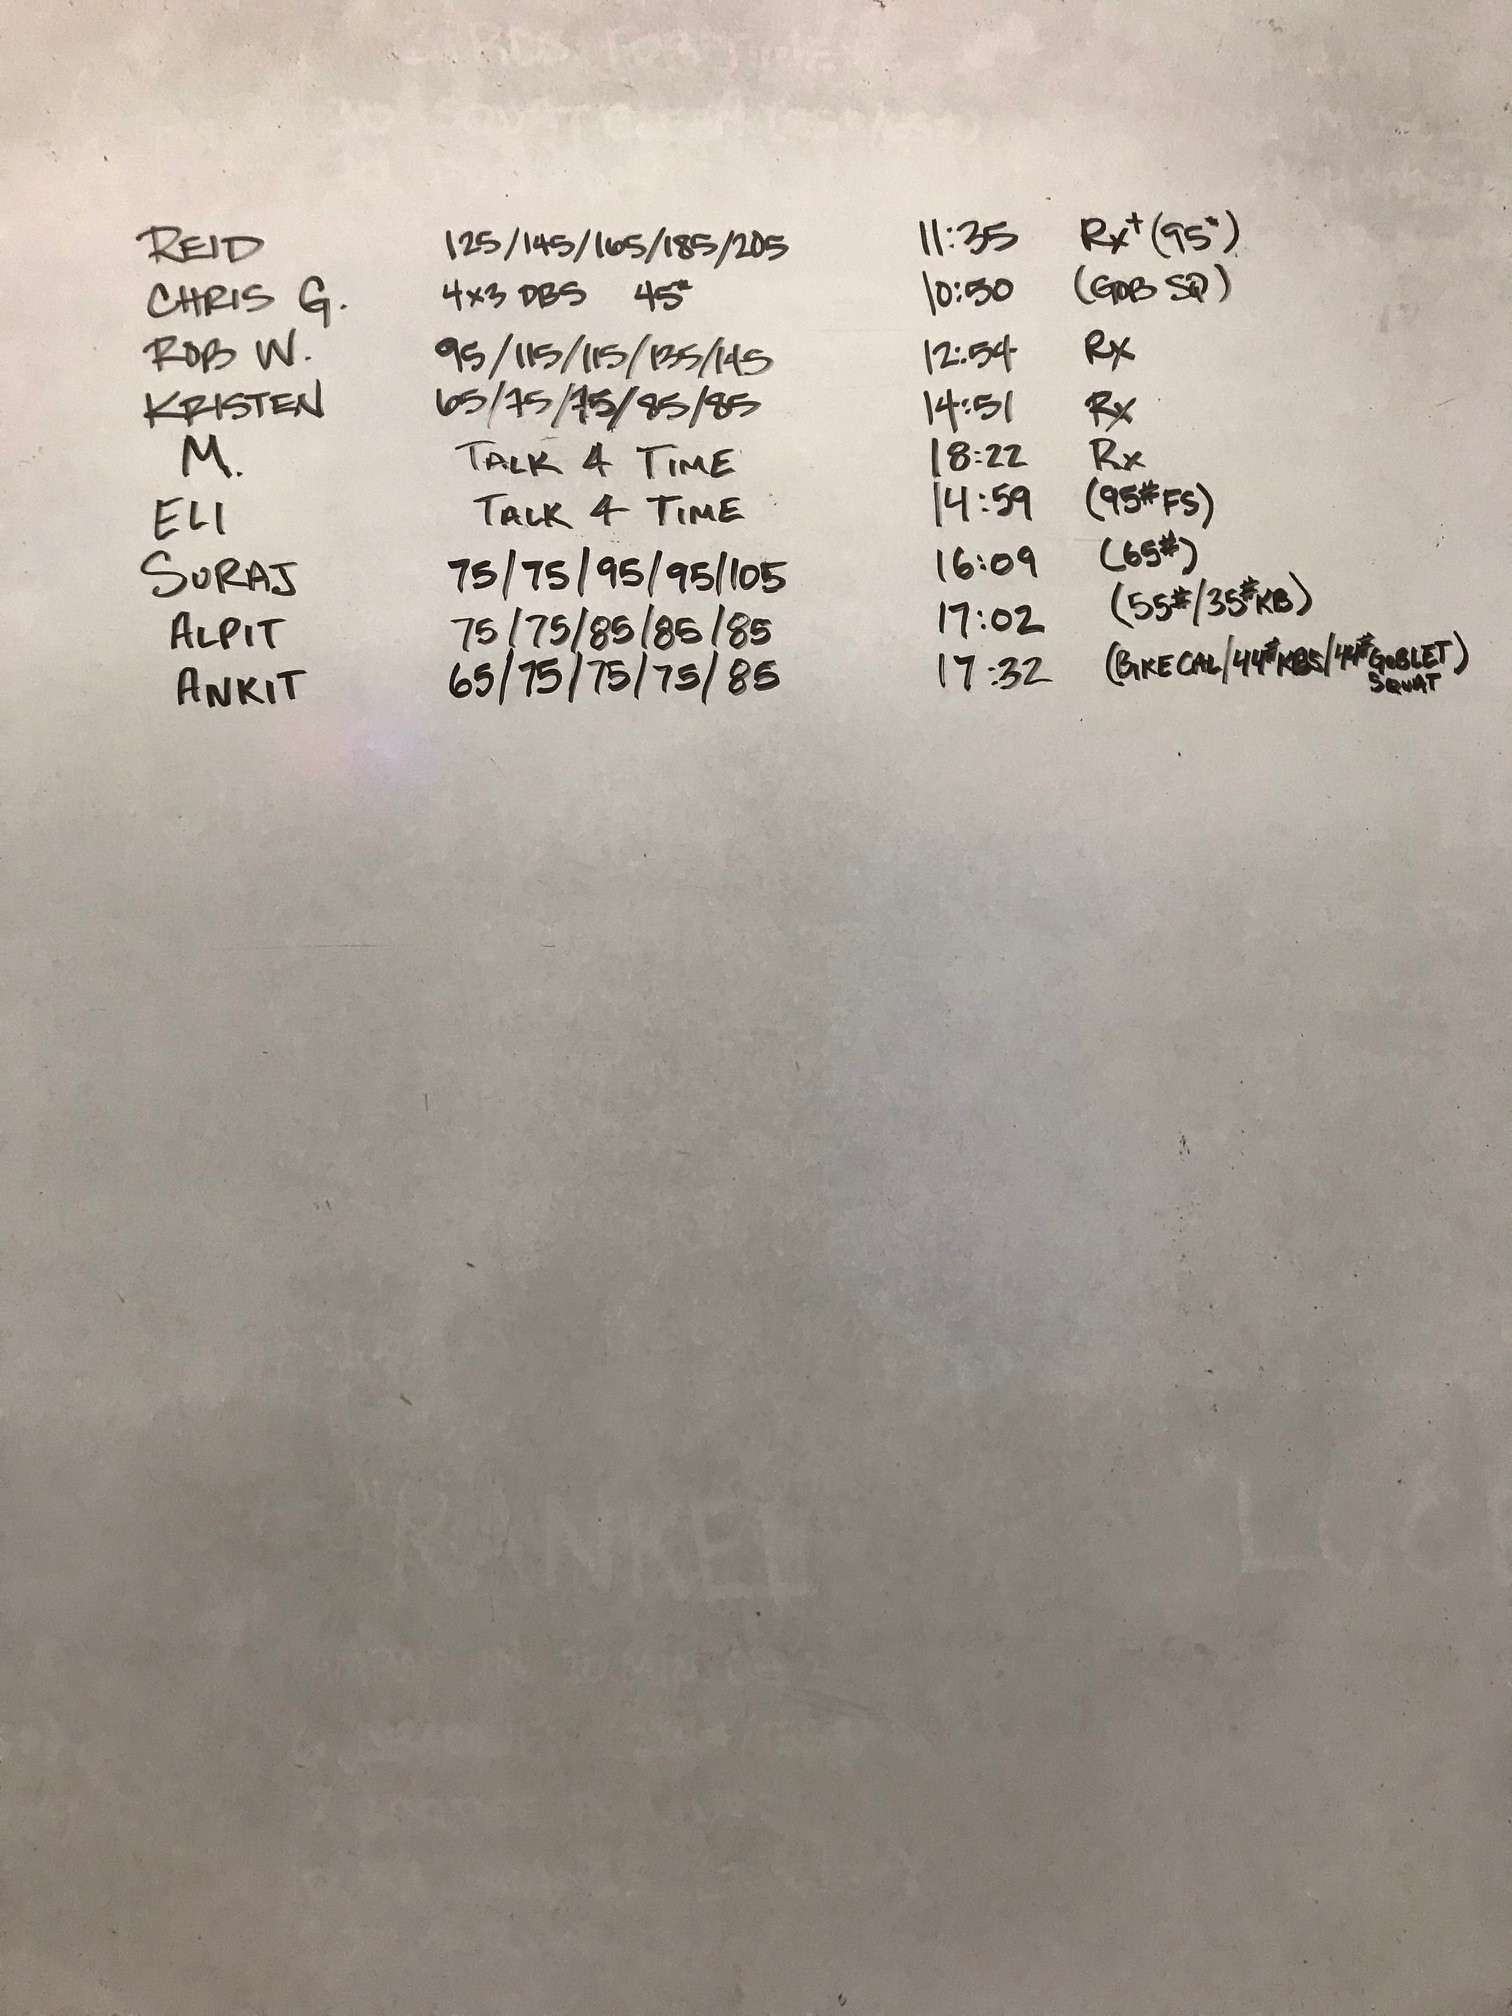 REID 125/145/165/185/205 11:35 Rx+ (95#)
CHRIS G. 4x3 DBS 45# 10:50 (GOB SQ)
ROB W. 95/115/115/135/145 12:54 Rx
KRISTEN 65/75/75/85/85 14:51 Rx
M. TALK 4 TIME 18:22 Rx
ELI TALK 4 TIME 14:59 (95# FS)
SURAJ 75/75/95/95/105 16:09 (65#)
ALPIT 75/75/85/85/85 17:02 (55#/35# KB)
ANKIT 65/75/75/75/85 17:32 (BIKE CAL/44# KBS/44# GOBLET
SQUAT)